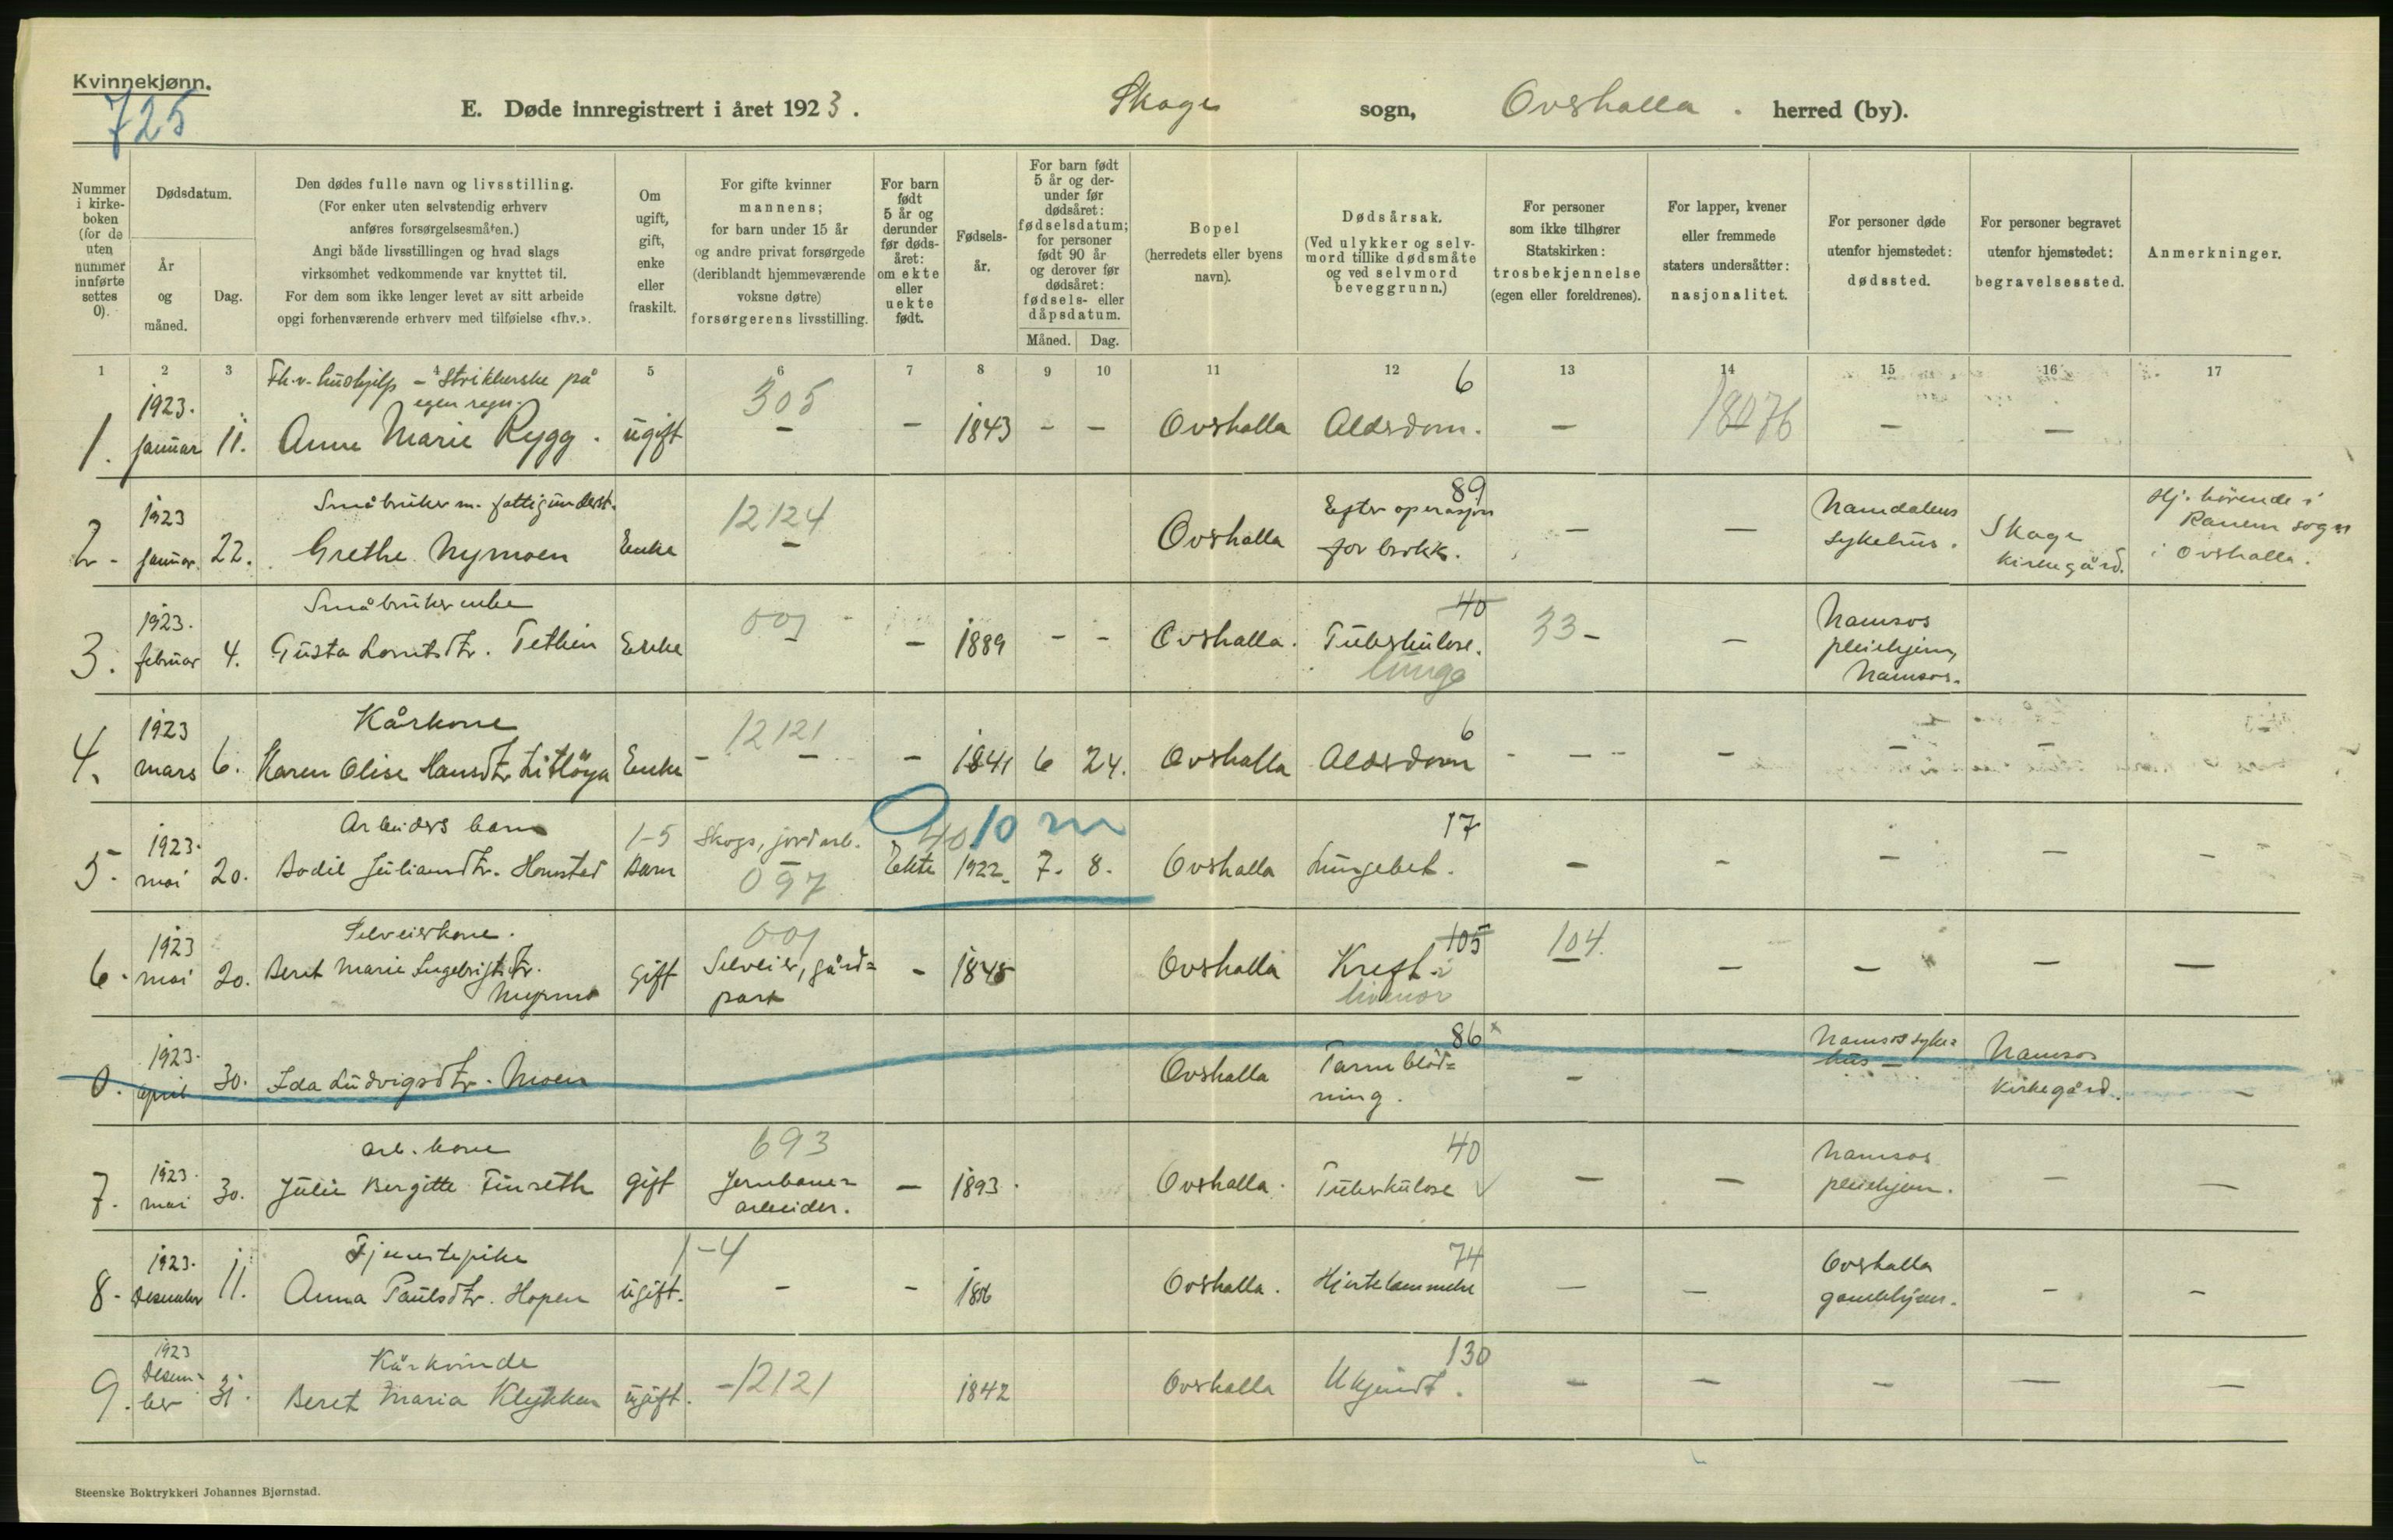 Kvinnekjønn.
725
E. Døde innregistrert i året 1923. Skage sogn, Overhalla. herred (by).
Nummer i kirke-boken (for de uten nummer innførte settes 0).
Dødsdatum.
År og måned.
Dag.
Den dødes fulle navn og livsstilling.
(For enker uten selvstendig erhverv
anføres forsørgelsesmåten.)
Angi både livsstillingen og hvad slags
virksomhet vedkommende var knyttet til.
For dem som ikke lenger levet av sitt arbeide
opgi forhenværende erhverv med tilføielse «fhv.».
Om ugift, gift, enke eller fraskilt.
For gifte kvinner
mannens;
for barn under 15 år
og andre privat forsørgede
(deriblandt hjemmeværende
voksne døtre)
forsørgerens livsstilling.
For barn født 5 år og derunder før døds-året: om ekte eller uekte født.
Fødsels-år.
For barn født 5 år og der-under før dødsåret: fødselsdatum; for personer født 90 år og derover før dødsåret: fødsels- eller dåpsdatum.
Måned. Dag.
Bopel
(herredets eller byens
navn).
Dødsårsak.
(Ved ulykker og selv-
mord tillike dødsmåte
og ved selvmord
beveggrunn.)
For personer
som ikke tilhører
Statskirken:
trosbekjennelse
(egen eller foreldrenes).
For lapper, kvener
eller fremmede
staters undersåtter:
nasjonalitet.
For personer døde
utenfor hjemstedet:
dødssted.
For personer begravet
utenfor hjemstedet:
begravelsessted.
Anmerkninger.
1 2 3 4 5 6 7 8 9 10 11 12 13 14 15 16 17
Fh.v. hushjelp - Strikkerske på
egen regn.
1. 1923. januar 11. Anne Marie Rygg. ugift 305 - - 1843 - - Overhalla Alderdom. 6 - 18076 - -
Småbruker m. fattigunderst.
2. 1923 januar 22. Grethe Nymoen Enke 12124 - Overhalla Efter operasjon for brokk. 89 - - Namdalens sykehus. Skage kirkegård. Hj. hörende i Ranem sogn i Overhalla.
Småbruker enke
3. 1923. februar 4. Gusta Tethin Enke 001 - - 1889 - - Overhalla. Tuberkulose. lunge 40 33 - - Namsos pleiehjem, Namsos.
Kårkone
4. 1923 mars 6. Karen Olise Hansdtr. Litlöya Enke - 12121 - - 1841 6 24. Overhalla Alderdom 6 - - - - -
Arbeiders barn
5. 1923. mai 20. Bodil Juliandtr. Homstad 1-5 Barn Skogs, jordarb. 097 40 10 m Ekte 1922. 7. 8. Overhalla Lungebet. 17 - - - - -
Selveierkone.
6. 1923 mai 20. Beret Marie Ingebrigtsdtr. gift 001 Selveier, gård= part - 1848 Overhalla Kreft i 105 104. - - - -
0. 1923. april 30. Ida Ludvigsdtr. Moen Overhalla Tarmblöd= ning. 86 x - - Namsos syke= hus - Namsos kirkegård. -
arb. kone
7. 1923. mai 30. Julie Bergitte Finseth gift 693 Jernbane= arbeider. - 1893. Overhalla. Tuberkulose 40 - - Namsos pleiehjem. - -
Tjenestepike
8. 1923. Desember 11. Anna Paulsdtr. Hopen ugift. 1-4 - - Overhalla. Hjertelammelse 74 - - Overhalla gamlehjem. - -
Kårkvinde
9. 1923 Desem- ber 31. Beret Maria Klykken ugift. -12121 1842 Overhalla Ukjendt. 130 - - - - -
Steenske Boktrykkeri Johannes Bjørnstad.